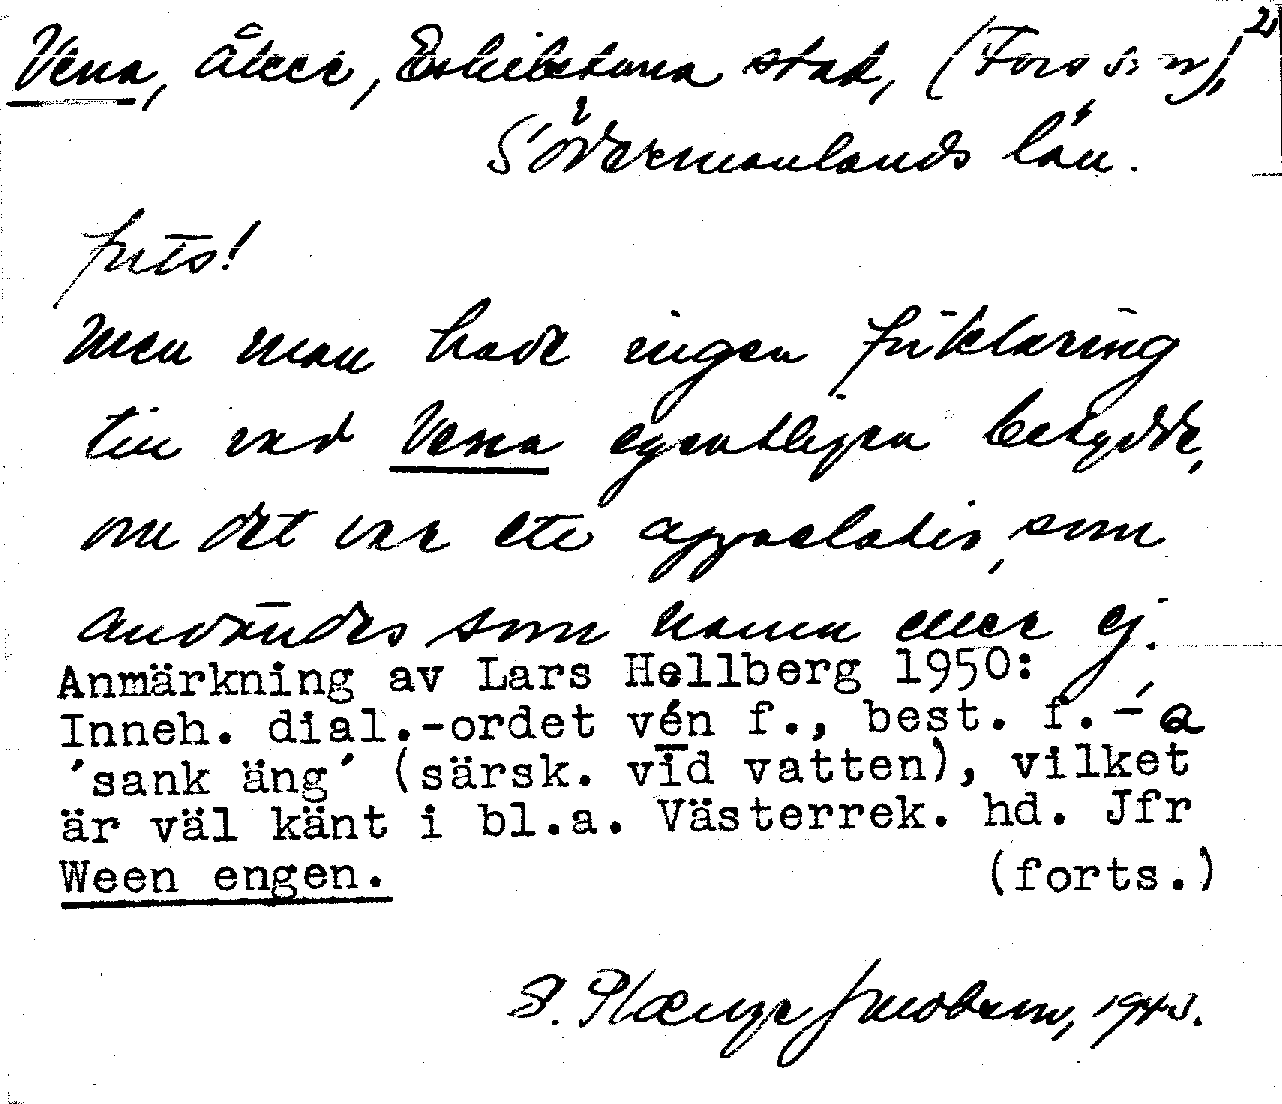 2)
Vena, åker, Eskilstuna stad, (Fors sn),
Södermanlands län.
forts!
Men man hade ingen förklaring
till vad Vena egentligen betydde,
om det var ett appellativ, som
användes som namn eller ej.
Anmärkning av Lars Hellberg 1950:
Inneh. dial.-ordet vén f., best. f. -a
'sank äng' (särsk. vid vatten), vilket
är väl känt i bl.a. Västerrek. hd. Jfr
Ween engen. (forts.)
S. Plænge Jacobson, 1943.